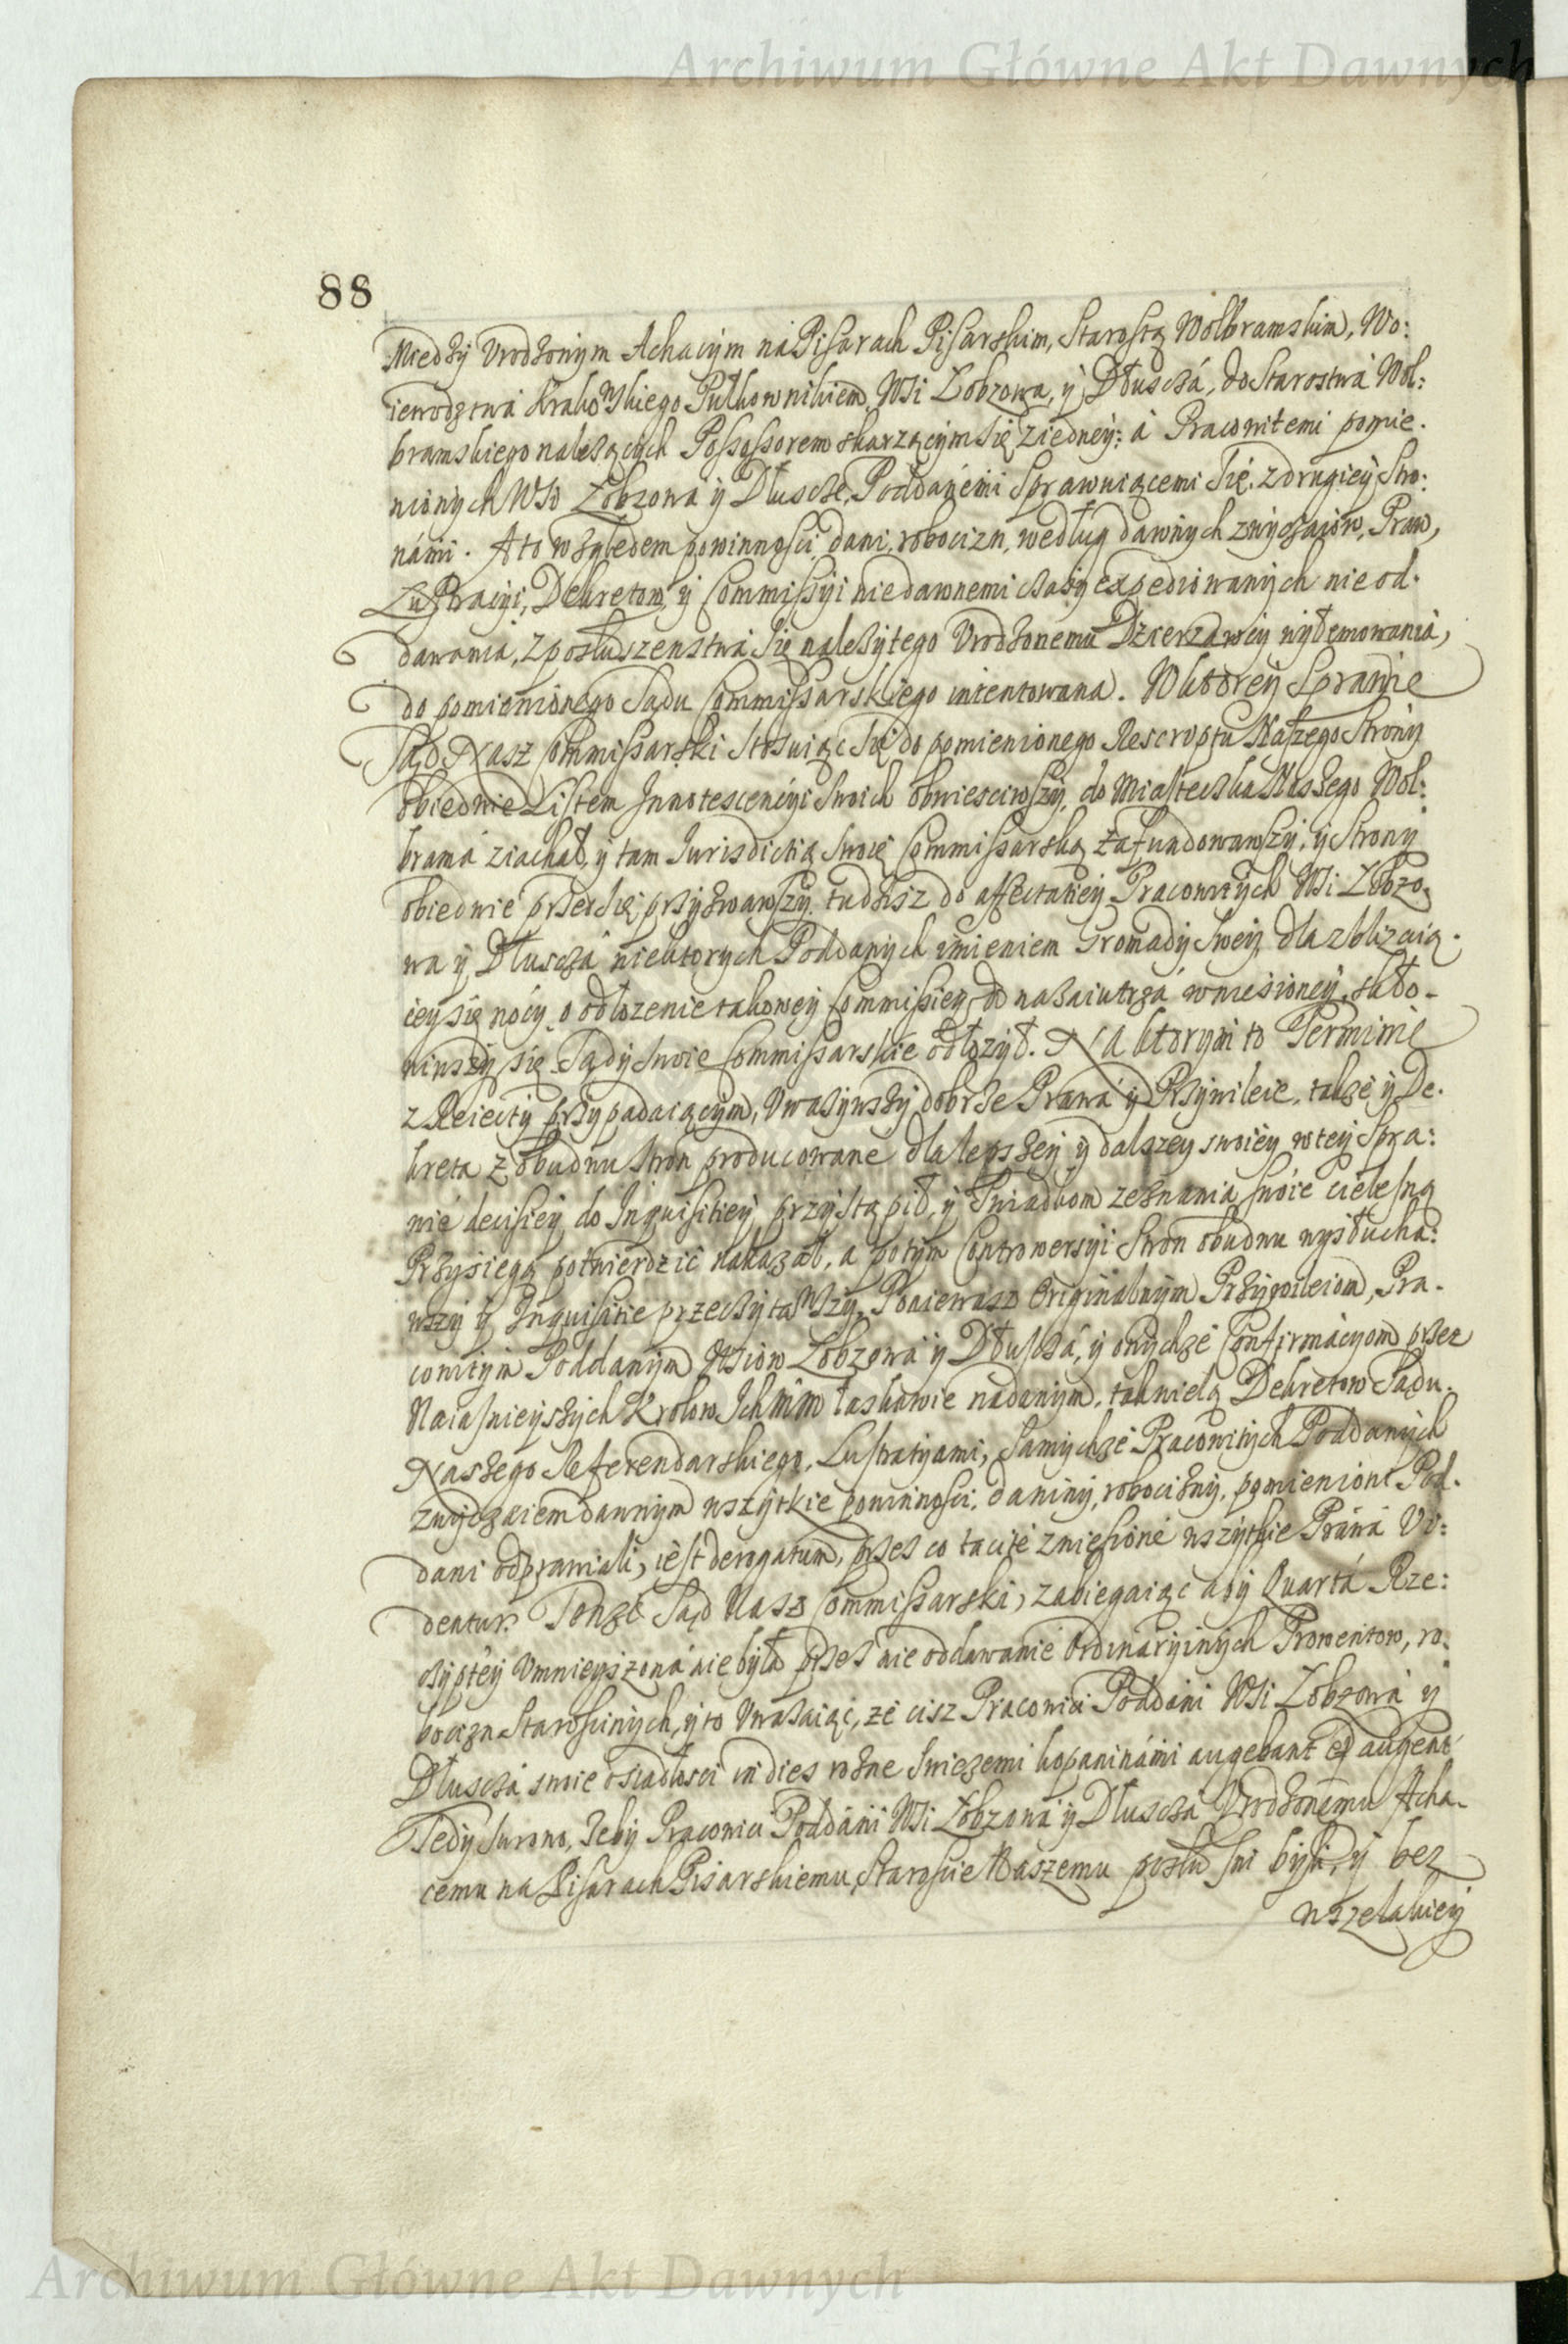 Archiwum Główne Akt Dawnych
88
Miedzy Vrodzonym Achacym na Pisarach Pisarskim, Starostą Wolbramskim, Wo:
iewodztwa Krakowskiego Pułkownikiem, Wsi Zobzowa, y Dłuscza, do Starostwa Wol:
bramskiego należących Possessorem skarzącym się z iedney: a Pracowitemi pomie-
nionych Wsi Łobzowa y Dłuscze, Poddanemi Sprawuiącemi się, z drugiey Stro:
nami. A to względem powinności, dani, robocizn, według dawnych zwyczaiow, Praw,
Lustracyi, Dekretow, y Commissyi niedawnemi czasy expediowanych nie od-
dawania, z posłuszenstwa się należytego Vrodzonemu Dzierzawcy wyłamowania,
do pomienionego Sądu Commissarskiego intentowana. W ktorey Sprawie
Sąd Nasz Commissarski stosuiąc się do pomienionego Rescryptu Naszego Strony
obiedwie Listem Innotescencyi swoich obwiesciwszy, do Miasteczka Naszego Wol:
brama ziachał, y tam Jurisdictią swoię Commissarską zafundowawszy, y Strony
obiedwie przed się przyzwawszy, tudzisz do affectatiey Pracowitych Wsi Łobzo-
wa y Dłuscza niektorych Poddanych imieniem Gromady swey, dla zblizaią-
cey się nocy, o odłozenie takowey Commissiey do nazaiutrza wniesioney, skło-
niwszy się, Sądy swoie Commissarskie odłozył. Na ktorym to Terminie
z Reiecty przypadaiącym, Vwazywszy dobrze Prawa y Przywileie, takze y De-
kreta z obudwu stron producowane dla lepszey y dalszey swoiey w tey Spra:
wie decisiey do Inquisitiey przystąpił, y Swiadkom zeznania swoie cielesną
Przysięgą potwierdzić nakazał, a potym Controwersyi Stron obudwu wysłucha:
wszy y Inquisitie przeczytawszy, Poniewasz Originalnym Przywileiom, Pra-
cowitym Poddanym Wsiow Łobzowa y Dłuscza, y onychze Confirmacyom przez
Naiasnieyszych Krolow Ichmm łaskawie nadanym, tak wielą Dekretow Sądu
Naszego Referendarskiego, Lustratyami, samychze Pracowitych Poddanych
zwyczaiem dawnym wszytkie powinności, daniny, robocizny, pomienioni Pod-
dani odprawiali, iest derogatum, przez co tacite zniesione wszytkie Prawa Vi:
dentur. Tenze Sąd Nasz Commissarski, zabiegaiąc aby Quarta Rze:
czyptey Vmnieyszona nie była przez nie oddawanie Ordinaryinych Prowentow, ro-
bocizn Starościnych, y to Vwazaiąc, ze cisz Pracowici Poddani Wsi Łobzowa y
Dłuscza swoie osiadłosci in dies rozne swiezemi kopaninami augebant et augent
Tedy surowo, zeby Pracowici Poddani Wsi Łobzowa y Dłuscza Vrodzonemu Acha-
cemu na Pisarach Pisarskiemu, Staroscie Naszemu posłuszni byli, y bez
wszelakiey
Archiwum Główne Akt Dawnych